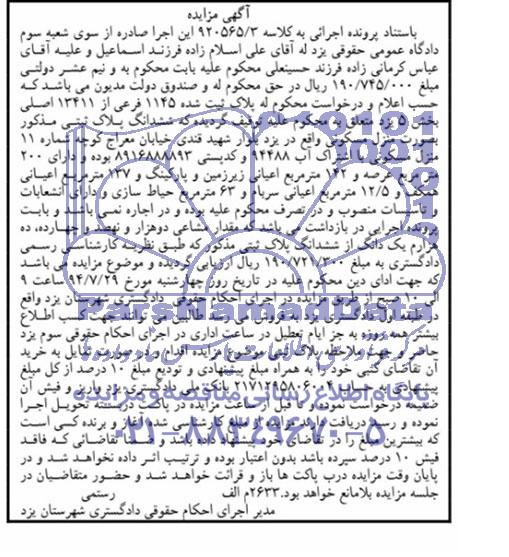 آگهی مزایده
باستناد پرونده اجرائی به کلاسه ۹۲۰۵۶۵/۳ این اجرا صادره از سوی شعبه سوم
دادگاه عمومی حقوقی یزد له آقای علی اسلام زاده فرزند اسماعیل و علیه آقای
عباس کرمانی زاده فرزند حسینعلی محکوم علیه بابت محکوم به و نیم عشر دولتی
مبلغ ۱۹۰/۷۴۵/۰۰۰ ریال در حق محکوم له و صندوق دولت مدیون می باشد که
حسب اعلام و درخواست محکوم له پلاک ثبت شده ۱۱۴۵ فرعی از ۱۳۴۱۱ اصلی
بخش ۵ یزد متعلق به محکوم علیه توقیف گردیده که ششدانگ پلاک ثبتی مذکور
بصورت منزل مسکونی واقع در یزد بلوار شهید قندی خیابان معراج کوچه شماره ۱۱
منزل مسکونی با اشتراک آب ۹۴۴۸۸ و کدپستی ۸۹۱۶۸۸۸۸۹۳ بوده و دارای ۲۰۰
متر مربع عرصه و ۱۴۲ مترمربع اعیانی زیرزمین و پارکینگ و ۱۳۷ مترمربع اعیانی
همکف و ۱۲/۵ مترمربع اعیانی سربام و ۶۳ مترمربع حیاط سازی و دارای انشعابات
و تاسیسات منصوب و در تصرف محکوم علیه بوده و در اجاره نمی باشد و بابت
پرونده اجرایی در بازداشت می باشد که مقدار مشاعی دوهزار و نهصد و چهارده، ده
هزارم یک دانگ از ششدانگ پلاک ثبتی مذکور که طبق نظریه کارشناسی رسمی
دادگستری به مبلغ ۱۹۰/۷۲۱/۳۰۰ ریال ارزیابی گردیده و موضوع مزایده می باشد
که جهت ادای دین محکوم علیه در تاریخ روز چهارشنبه مورخ ۹۴/۷/۲۹ ساعت ۹
الی ۱۰ صبح از طریق مزایده در اجرای احکام حقوقی دادگستری شهرستان یزد واقع
در طبقه اول دادگستری یزد بفروش می رسد طالبین می توانند جهت کسب اطلاع
بیشتر همه روزه به جز ایام تعطیل در ساعت اداری در اجرای احکام حقوقی سوم یزد
حاضر و جهت ملاحظه پلاک ثبتی موضوع مزایده اقدام و در صورت تمایل به خرید
آن تقاضای کتبی خود را به همراه مبلغ پیشنهادی و تودیع مبلغ ۱۰ درصد از کل مبلغ
پیشنهادی به حساب ۲۱۷۱۲۹۵۸۰۶۰۰۴ بانک ملی دادگستری یزد واریز و فیش آن
ضمیمه درخواست نموده و تا قبل از ساعت مزایده در پاکت دربسته تحویل اجرا
نموده و رسید دریافت دارند مزایده از مبلغ کارشناسی شده آغاز و برنده کسی است
که بیشترین مبلغ را در تقاضای خود پیشنهاد داده باشد و ضمنا تقاضائی که فاقد
فیش ۱۰ درصد سپرده باشد بدون اعتبار بوده و ترتیب اثر داده نخواهد شد و در
پایان وقت مزایده درب پاکت ها باز و قرائت خواهد شد و حضور متقاضیان در
جلسه مزایده بلامانع خواهد بود. ۲۶۳۳م الف
رستمی
مدیر اجرای احکام حقوقی دادگستری شهرستان یزد
ParsNamadData
پایگاه اطلاع رسانی مناقصه و مزایده
۰۲۱-۸۸۳۴۹۶۷۰-۵